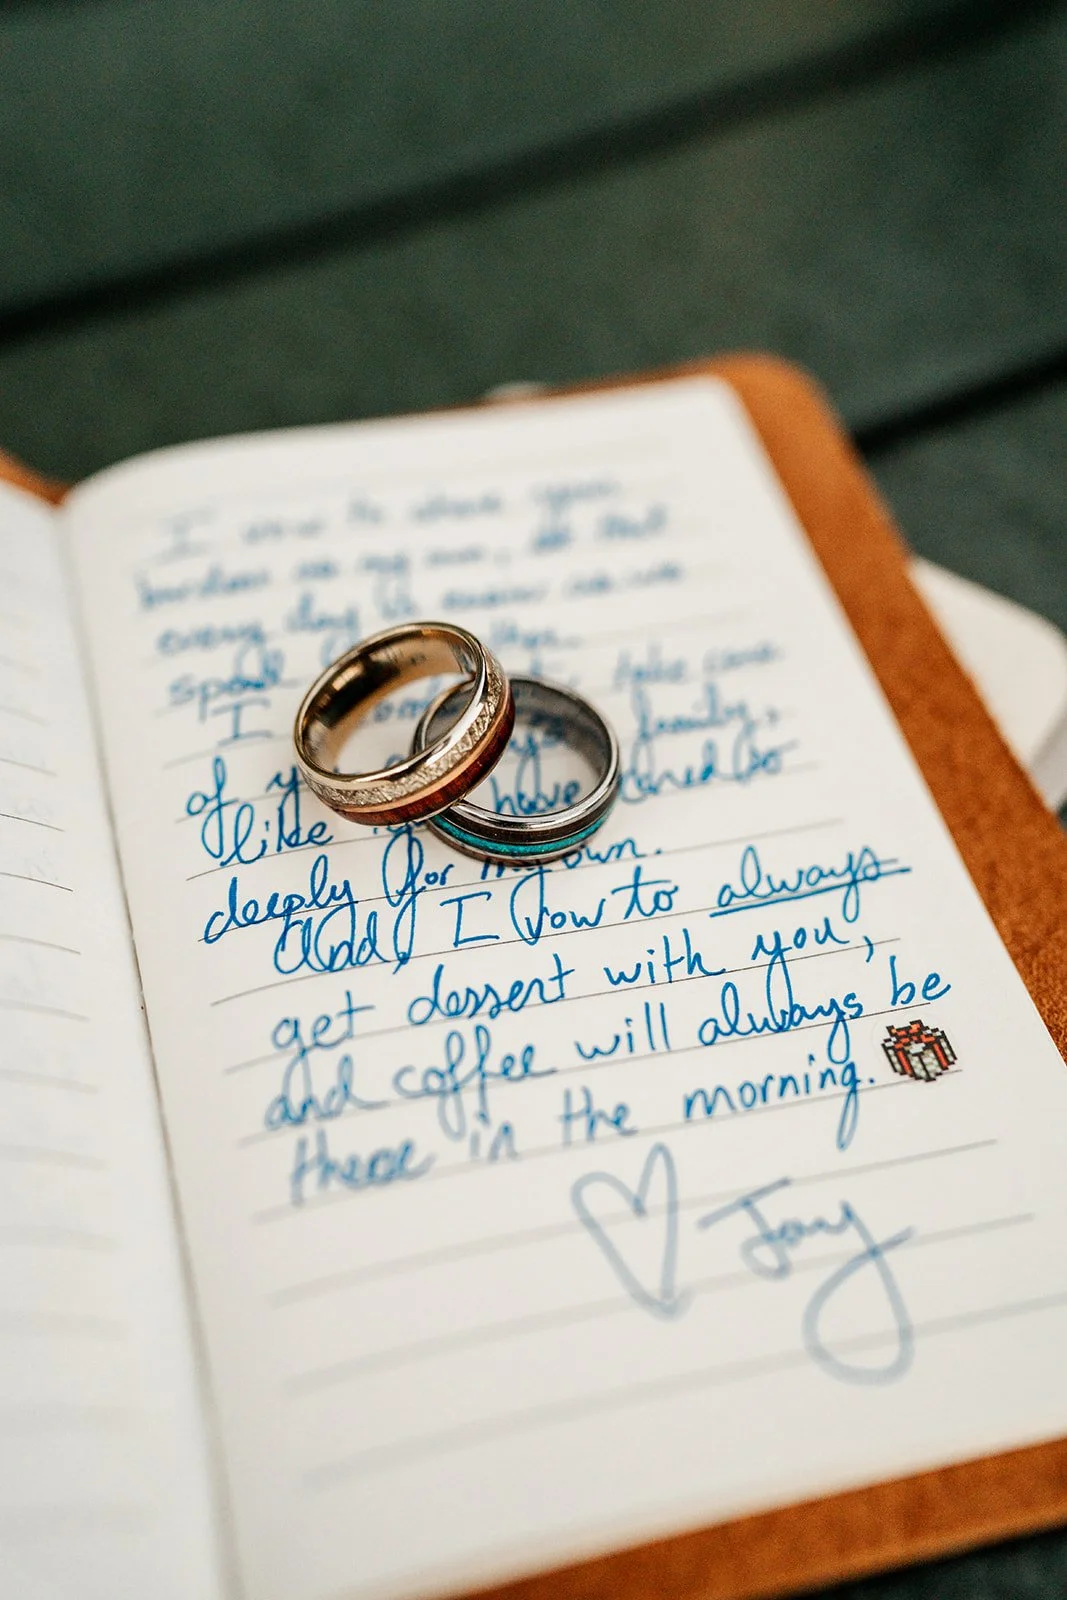 I vow to share your
burden as my own, so that
every day is easier as we
spend
I take care
of family,
like have cared so
deeply for my own.
And, I vow to always
get dessert with you,
and coffee will always be
there in the morning.
Jay